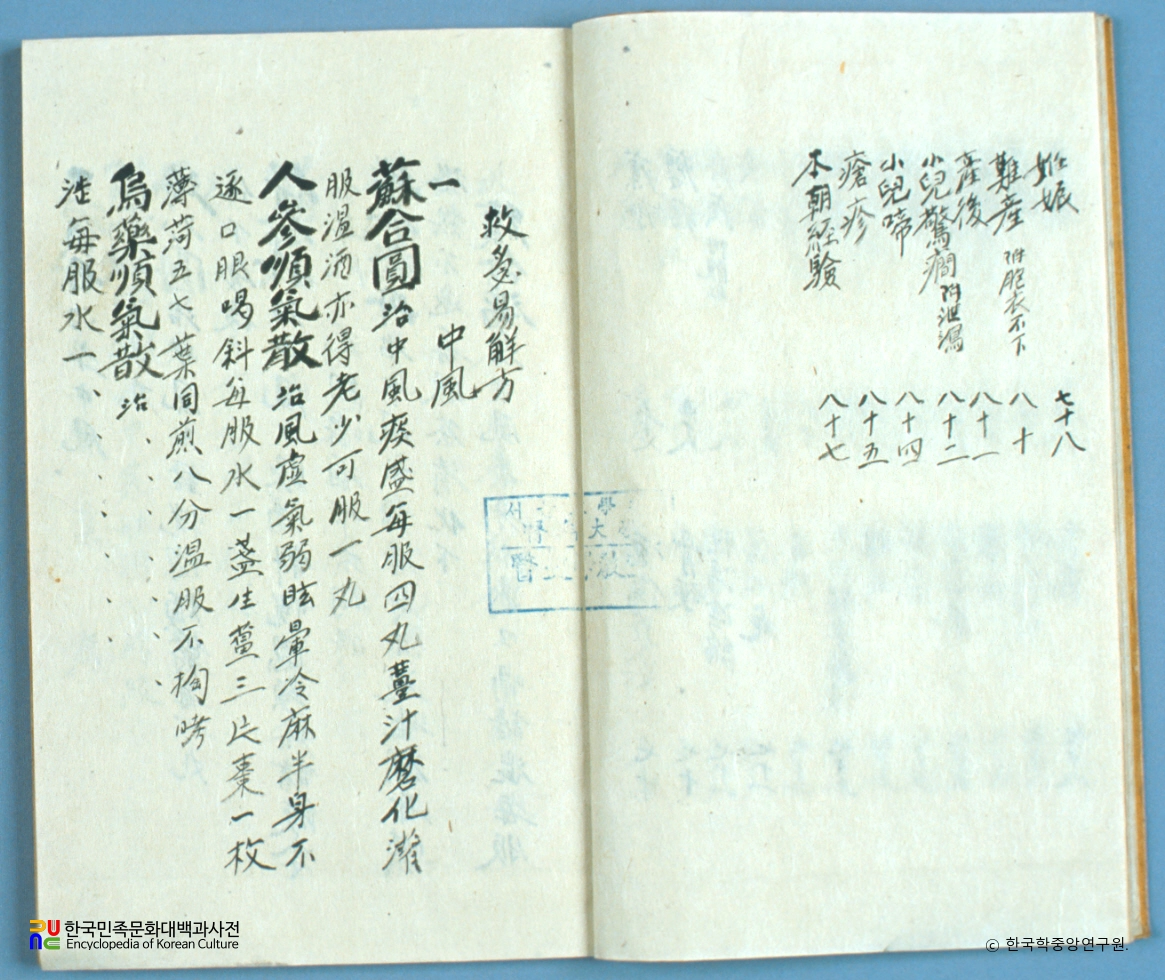 姙娠 七十八
難産 附胞衣不下 八十
産後 八十一
小兒驚癎 附泄瀉 八十二
小兒啼 八十四
瘡疹 八十五
本朝經驗 八十七
救急易解方
一 中風
蘇合圓 治中風痰盛每服四丸薑汁磨化灌
服溫酒亦得老少可服一丸
人參順氣散 治風虛氣弱眩暈冷麻半身不
遂口眼喎斜每服水一盞生薑三片棗一枚
薄荷五七葉同煎八分溫服不拘時
烏藥順氣散 治
法每服水一
學
大
한국민족문화대백과사전
Encyclopedia of Korean Culture
© 한국학중앙연구원.